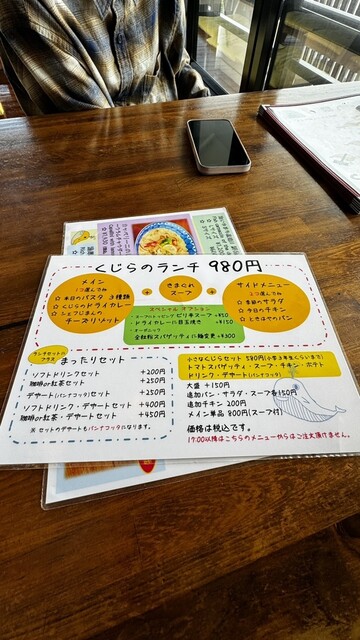 くじらのランチ 980円
メイン
1つ選んでね
☆ 本日のパスタ 3種類
☆ くじらのドライカレー
☆ シェフじまんの
チーズリゾット
+
きまぐれ
スープ
+
サイドメニュー
2つ選んでね
☆ 季節のサラダ
☆ 今日のチキン
☆ ときほぐのパン
スペシャル オプション
ピリ辛スープ +50
・ドライカレーに目玉焼き +150
・オーガニック
全粒粉スパゲティに麺変更 +300
ランチセットに
プラス
まったりセット
ソフトドリンクセット +200円
珈琲or紅茶セット +250円
デザート(パンナコッタ)セット +250円
ソフトドリンク・デザートセット +400円
珈琲or紅茶・デザートセット +450円
※ セットのデザートもパンナコッタになります。
小さなくじらセット 580円(小学3年生くらいまで)
トマトスパゲティ・スープ・チキン・ポテト
ドリンク・デザート(パンナコッタ)
大盛 +150円
追加パン・サラダ・スープ各150円
追加チキン 200円
メイン単品 800円(スープ付)
価格は税込です。
17:00以降はこちらのメニューからはご注文頂けません。